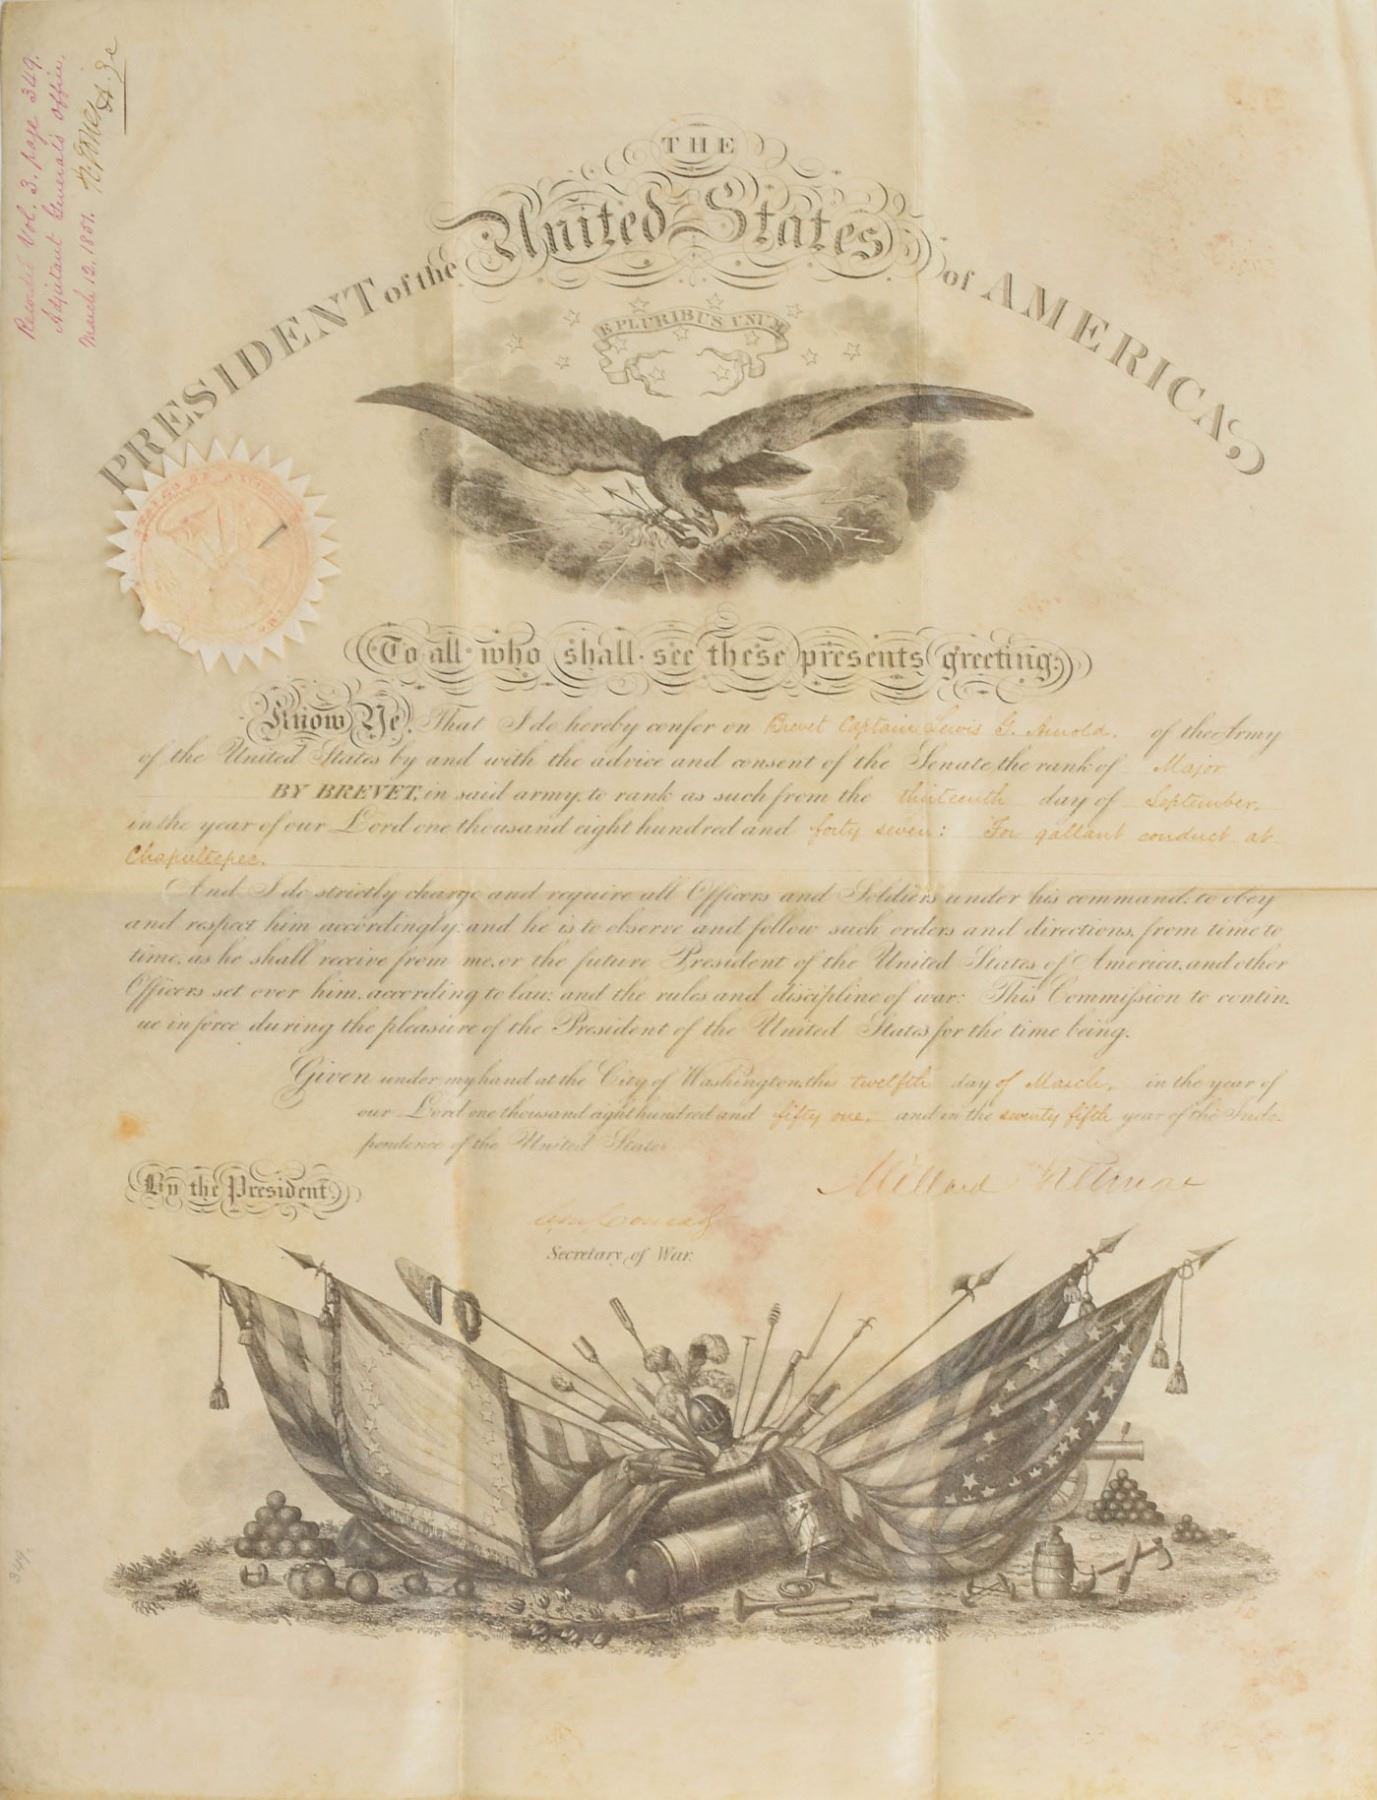 Recorded Vol. 3. page 349.
Adjutant General's Office.
March 12, 1851.
THE
United States
PRESIDENT of the
of AMERICA
E PLURIBUS UNUM
To all who shall see these presents greeting:
Know Ye, That I do hereby confer on Brevet Captain Lewis G. Arnold. of the Army
of the United States by and with the advice and consent of the Senate the rank of Major
BY BREVET, in said army, to rank as such from the thirteenth day of September,
in the year of our Lord one thousand eight hundred and forty seven: For gallant conduct at
Chapultepec.
And I do strictly charge and require all Officers and Soldiers under his command, to obey
and respect him accordingly; and he is to observe and follow such orders and directions, from time to
time, as he shall receive from me, or the future President of the United States of America, and other
Officers set over him, according to law; and the rules and discipline of war: This Commission to contin.
ue in force during the pleasure of the President of the United States for the time being.
Given under my hand at the City of Washington, this twelfth day of March, in the year of
our Lord one thousand eight hundred and fifty one, and in the seventy fifth year of the Inde-
pendence of the United States
Millard Fillmore
By the President,
Secretary of War.
349.